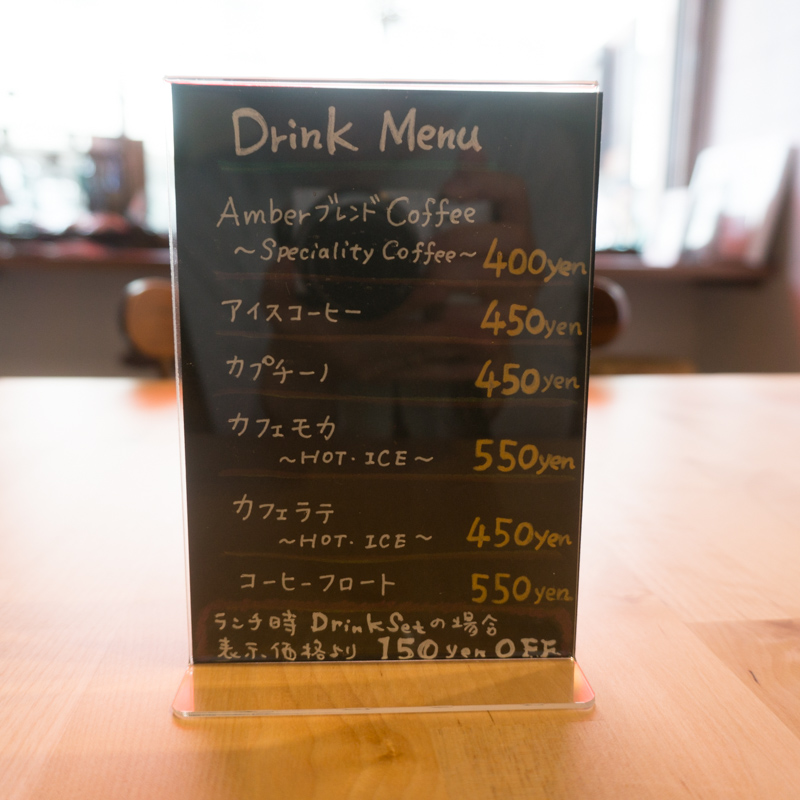 Drink Menu
Amberブレンド Coffee
～Speciality Coffee～ 400yen
アイスコーヒー 450yen
カプチーノ 450yen
カフェモカ
～HOT・ICE～ 550yen
カフェラテ
～HOT・ICE～ 450yen
コーヒーフロート 550yen
ランチ時 DrinkSetの場合
表示価格より 150yen OFF